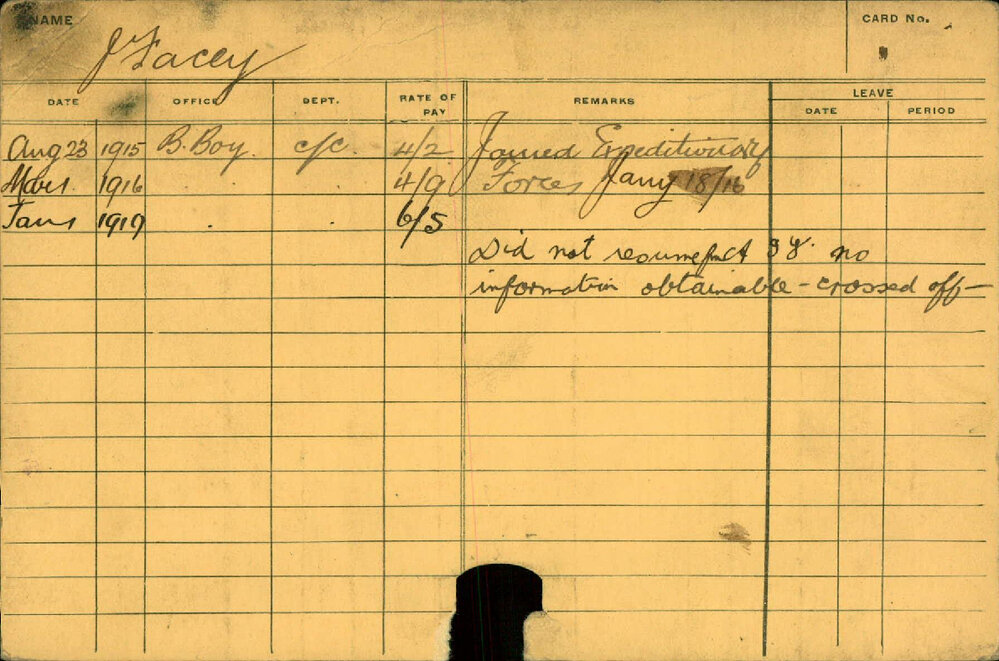 NAME
J Facey
CARD No.
DATE OFFICE DEPT. RATE OF PAY REMARKS LEAVE
DATE PERIOD
Aug 23 1915 B. Boy. c/c. 4/2 Joined Expeditionary
Mar 1 1916 . . 4/9 Forces Jany 18/16
Jan 1 1919 . . 6/5
Did not resume no
information obtainable - crossed off -